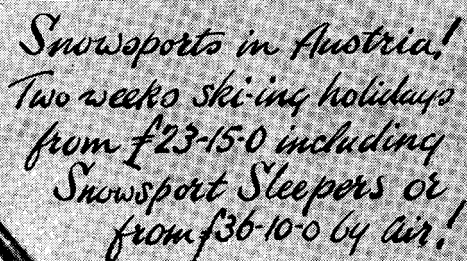 Snowsports in Austria!
Two weeks ski-ing holidays
from £23-15-0 including
Snowsport Sleepers or
from £36-10-0 by air!